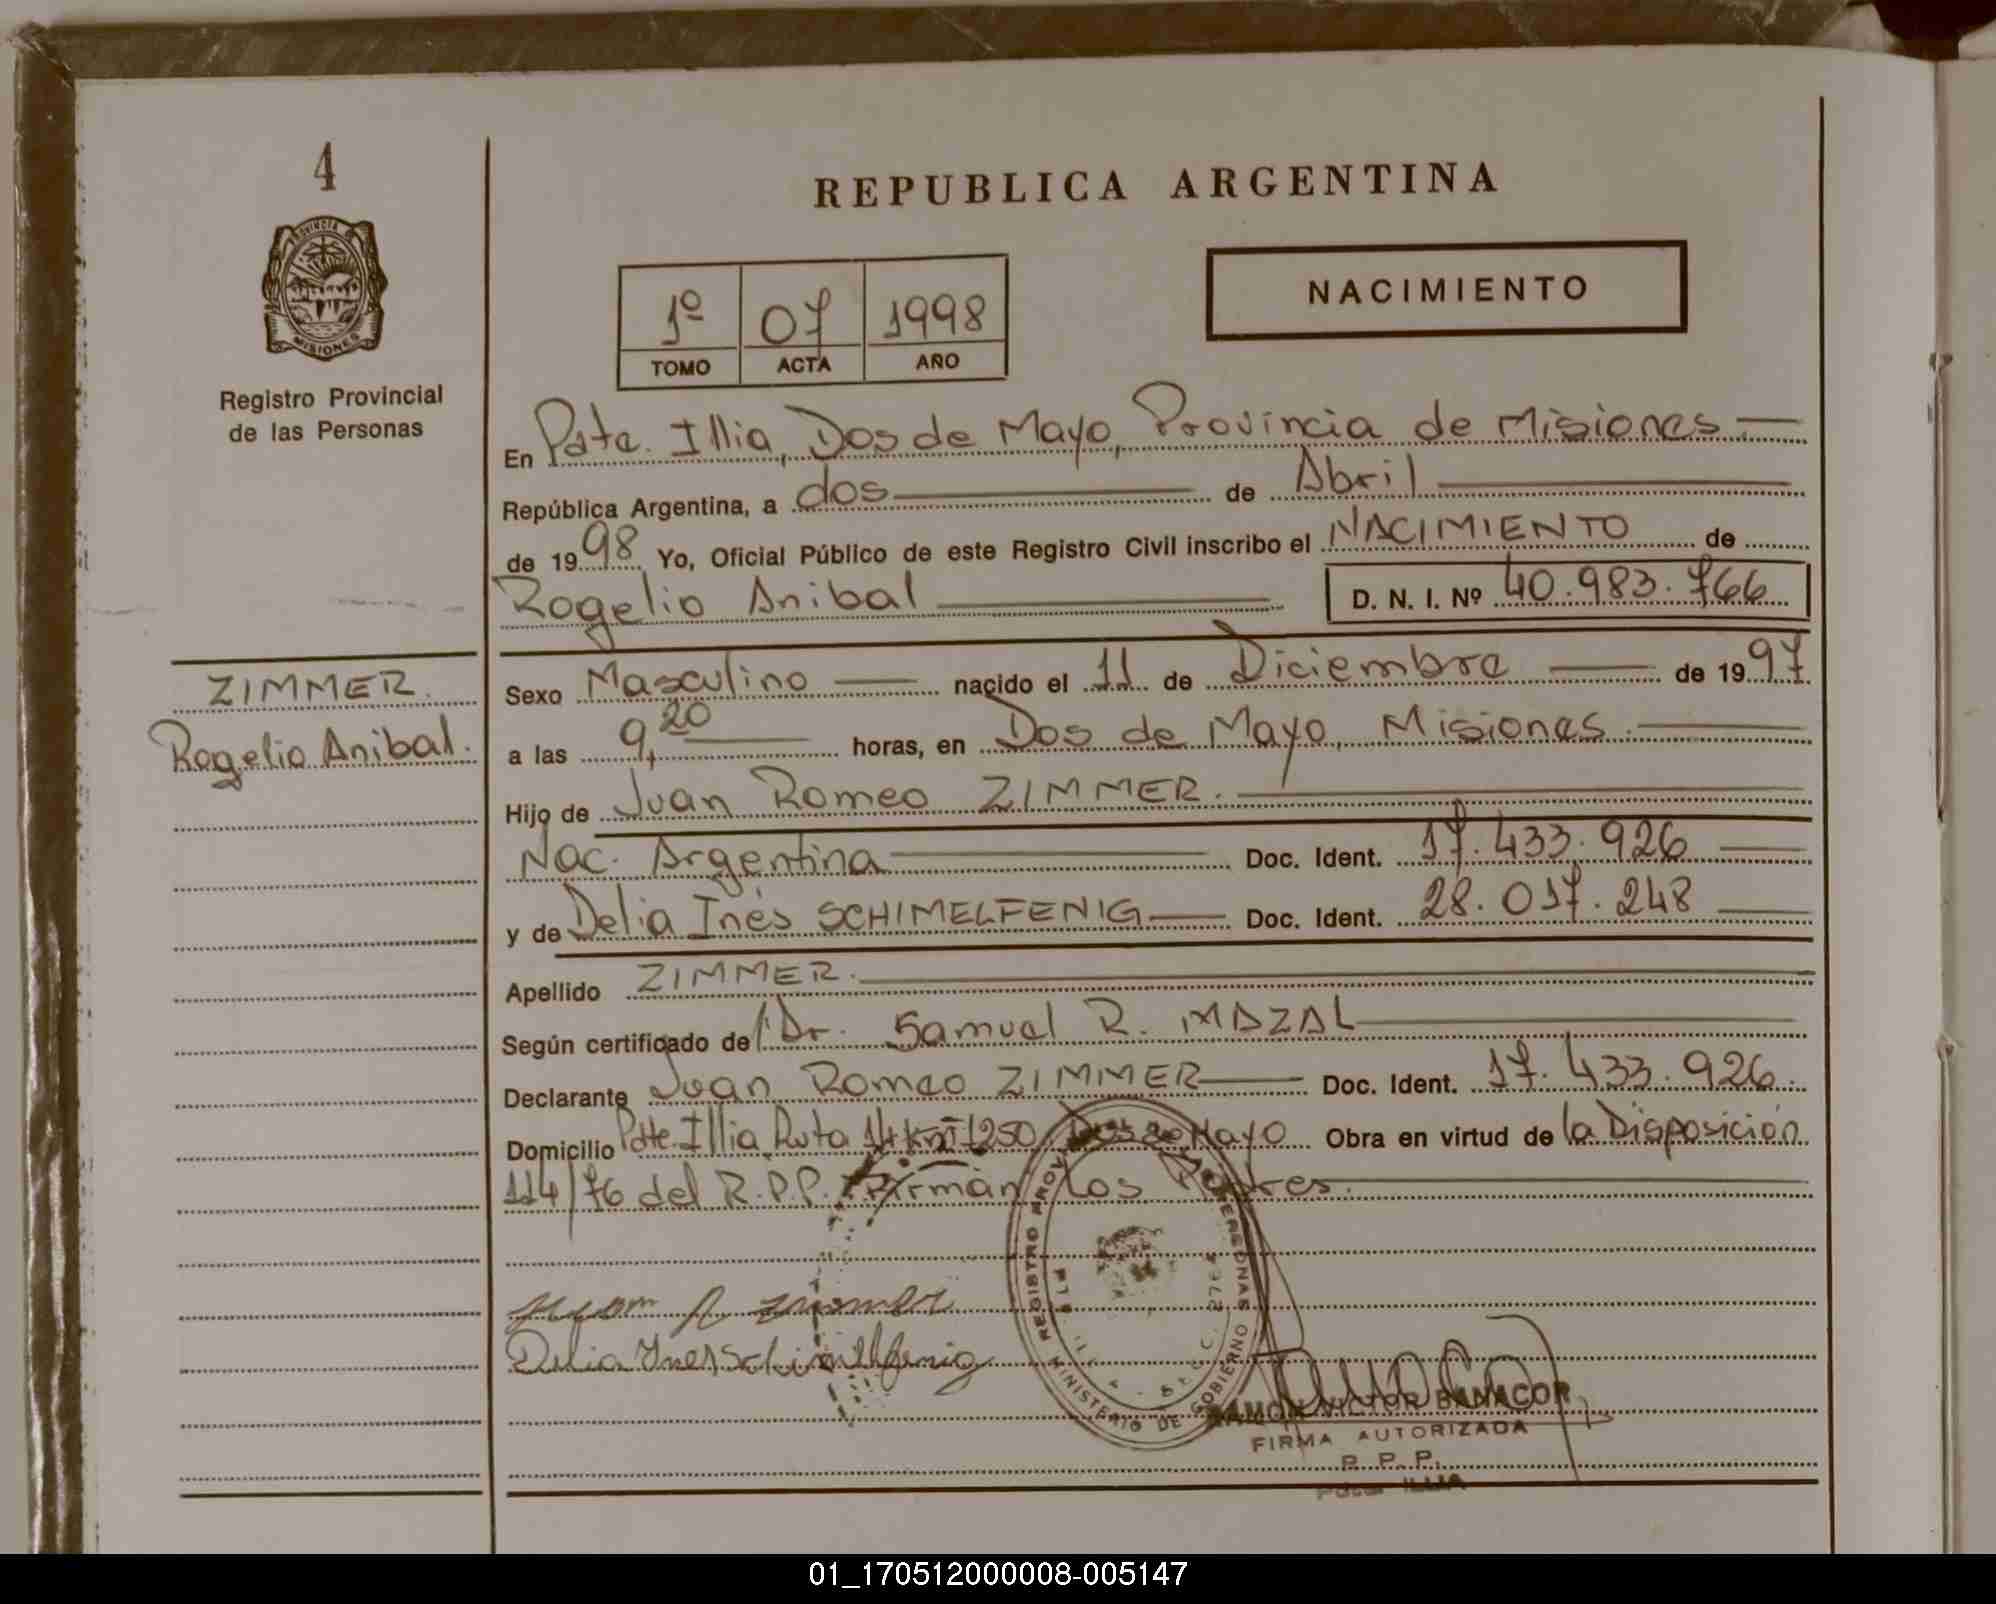 4
PROVINCIA DE
MISIONES
Registro Provincial
de las Personas
ZIMMER.
Rogelio Anibal.
REPUBLICA ARGENTINA
1º 07 1998
TOMO ACTA AÑO
NACIMIENTO
En Pdte. Illia, Dos de Mayo, Provincia de Misiones.
República Argentina, a dos de Abril
de 1998 Yo, Oficial Público de este Registro Civil inscribo el NACIMIENTO de
Rogelio Anibal D. N. I. Nº 40.983.766
Sexo Masculino nacido el 11 de Diciembre de 1997
a las 9,20 horas, en Dos de Mayo, Misiones.
Hijo de Juan Romeo ZIMMER.
Nac. Argentina Doc. Ident. 17.433.926
y de Delia Inés SCHIMELFENIG Doc. Ident. 28.017.248
Apellido ZIMMER.
Según certificado de Dr. Samuel R. MAZAL
Declarante Juan Romeo ZIMMER Doc. Ident. 17.433.926.
Domicilio Pdte. Illia Ruta 14 Km 1250, Dos de Mayo Obra en virtud de la Disposición
114/76 del R.P.P. Firman los Padres.
Delia Ines Schimelfenig
REGISTRO PROV PERSONAS
MINISTERIO DE GOBIERNO
RAMON VICTOR BANACOR
FIRMA AUTORIZADA
R. P. P.
Pdte. ILLIA
01_170512000008-005147